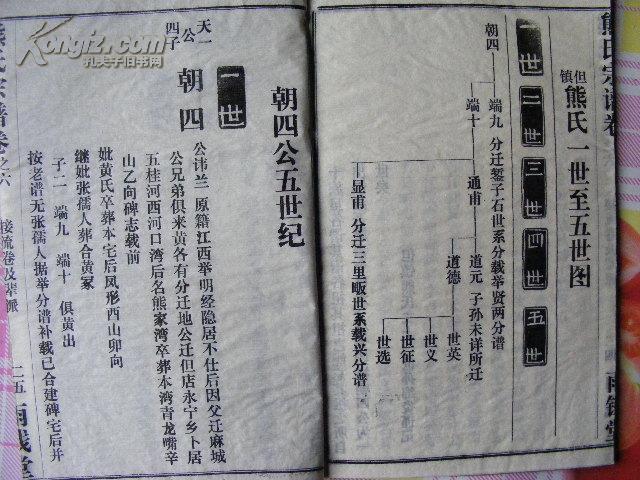 熊氏宗谱卷
但镇熊氏一世至五世图
一世 二世 三世 四世 五世
朝四
端九 分迁錾子石世系分载举贤两分谱
端十
通甫
道元 子孙未详所迁
道德
世英
世义
世征
世选
显甫 分迁三里畈世系载兴分谱
朝四公五世纪
一世
天一公四子
朝四
公讳兰原籍江西举明经隐居不仕后因父迁麻城
公兄弟俱来黄各有分迁地公迁但店永宁乡卜居
五桂河西河口湾后名熊家湾卒葬本湾青龙嘴辛
山乙向碑志载前
妣黄氏卒葬本宅后凤形西山卯向
继妣张孺人葬合黄冢
子二 端九 端十 俱黄出
按老谱无张孺人据举分谱补载已合建碑宅后并
熊氏宗谱卷之六
接流卷及辈派
二五
两钱堂
Kongfz.com
孔夫子旧书网